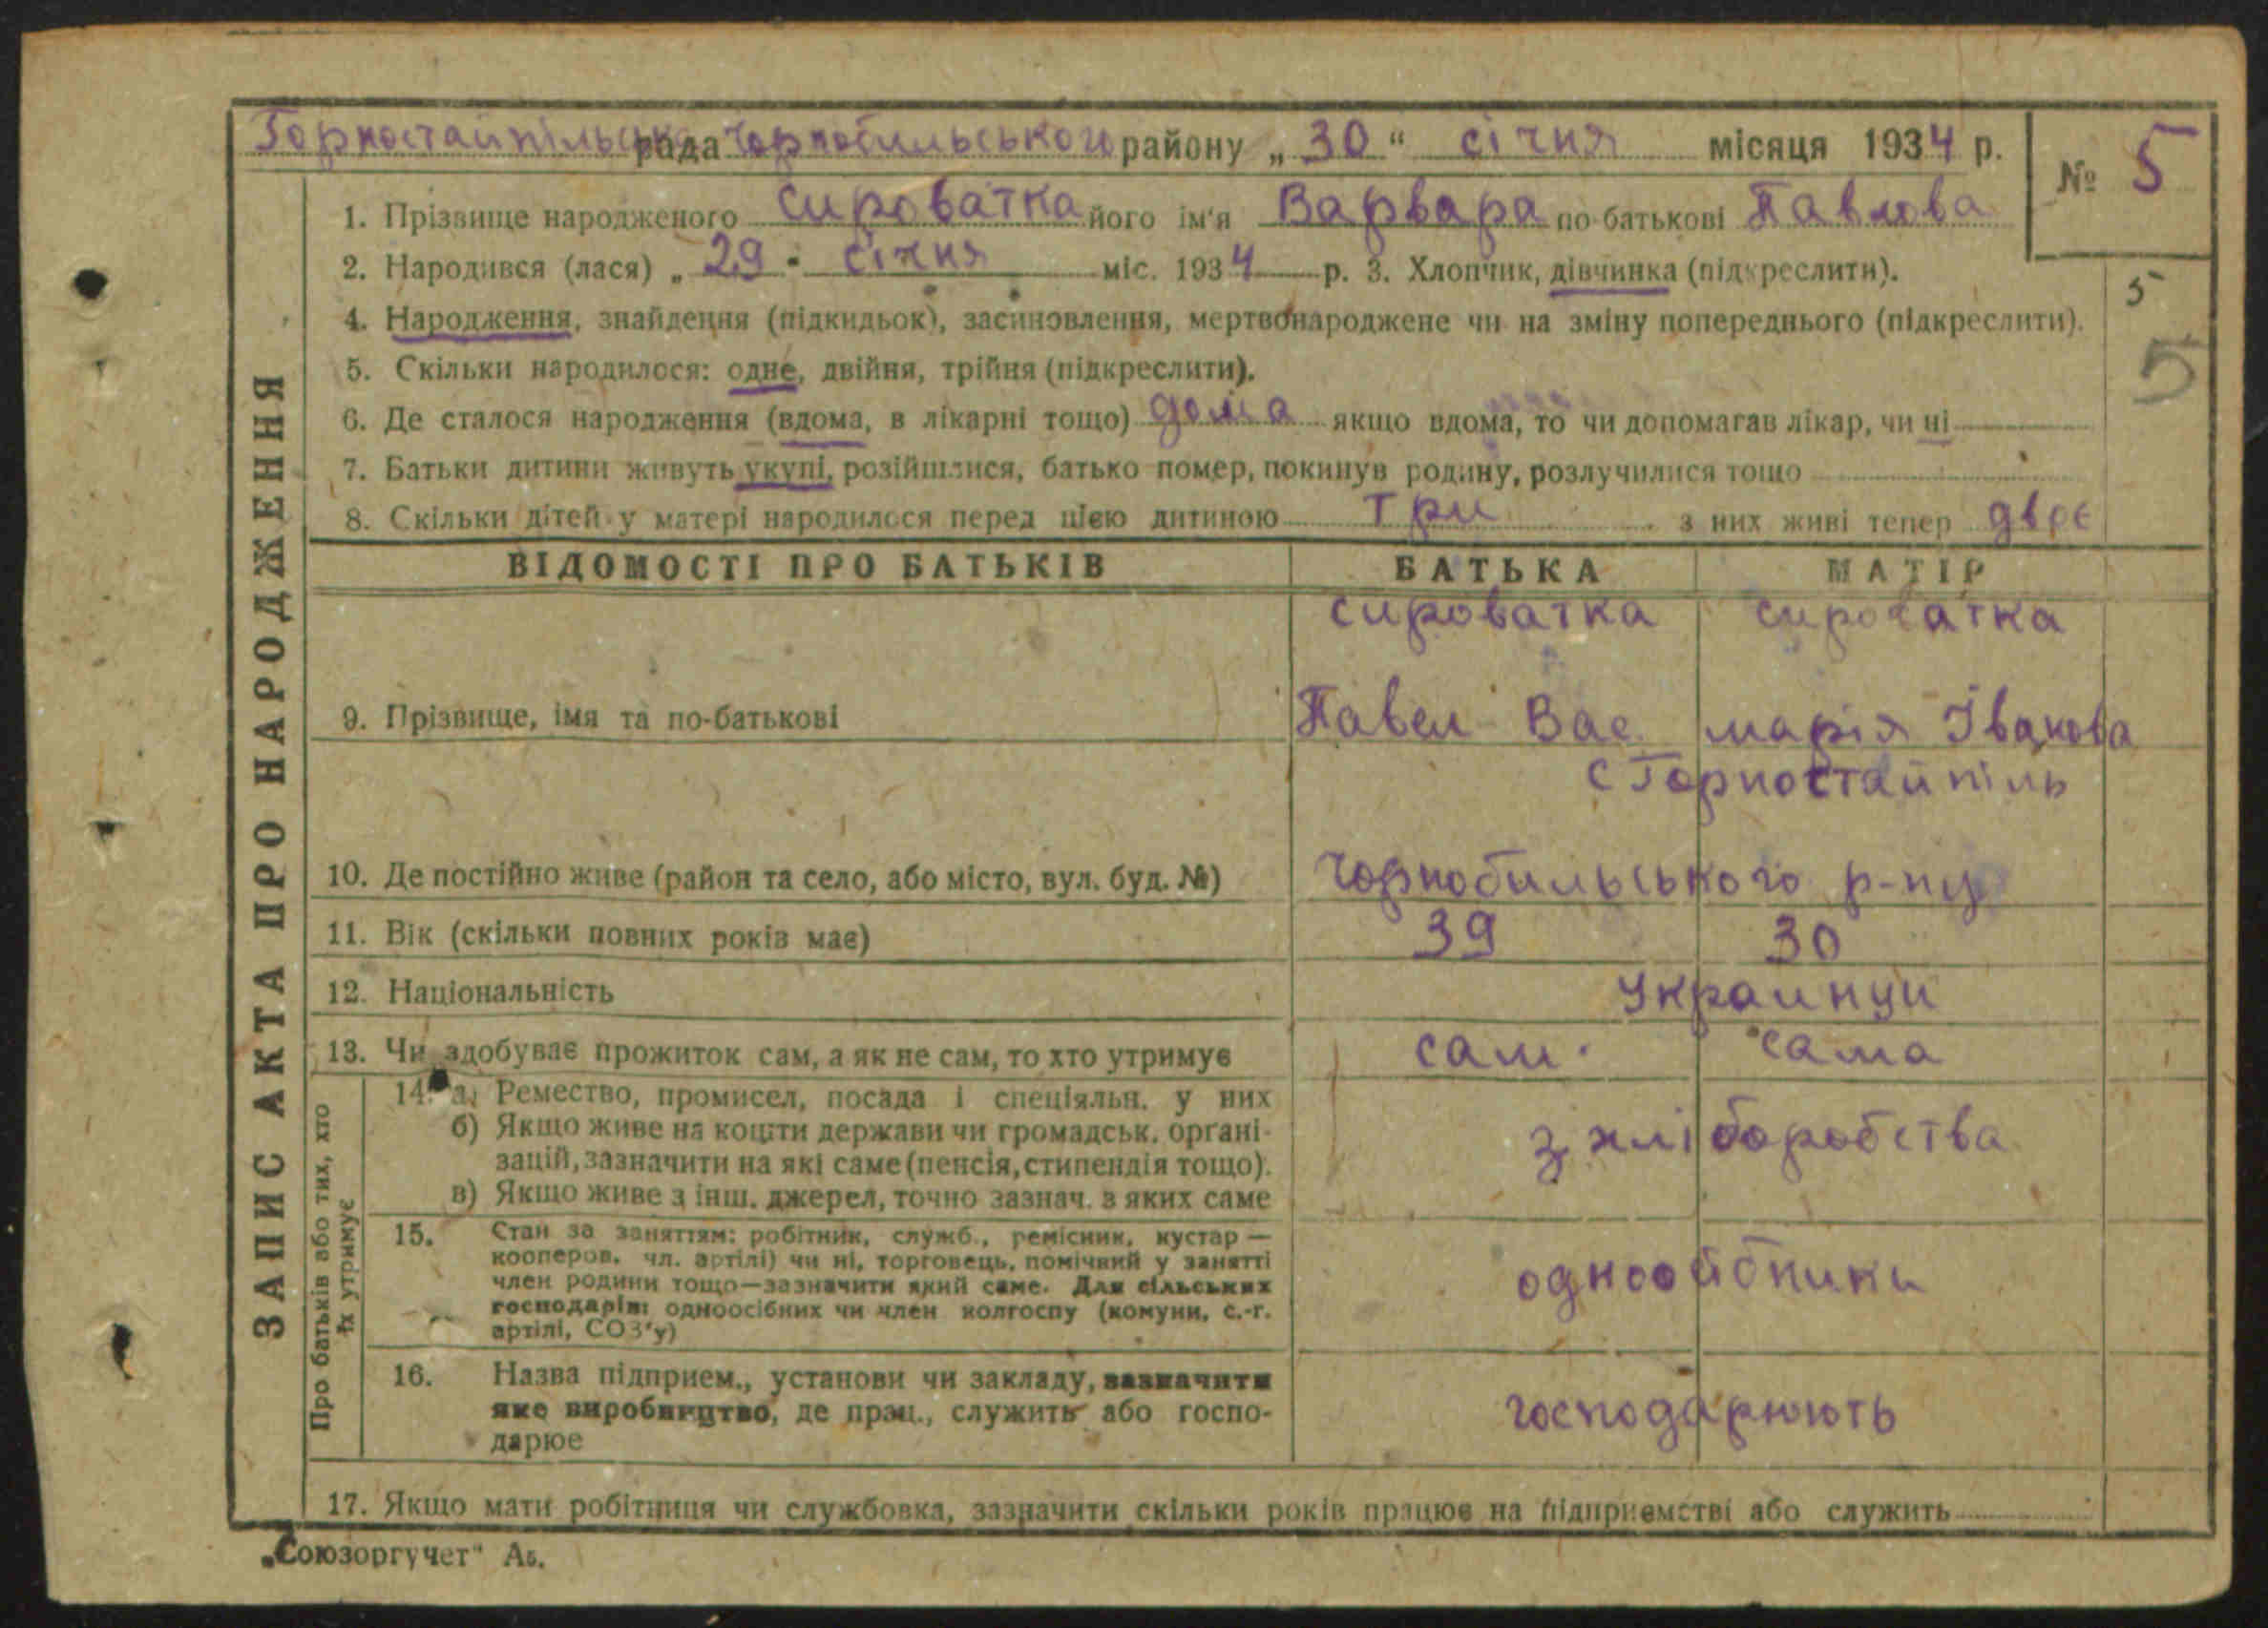 Горностайпільська рада Чорнобильського району „30“ січня місяця 1934 р.
№ 5
1. Прізвище народженого Сироватка його ім'я Варвара по-батькові Павлова
2. Народився (лася) „29" січня міс. 1934 р. 3. Хлопчик, дівчинка (підкреслити).
5
4. Народження, знайдення (підкидьок), засиновлення, мертвонароджене чи на зміну попереднього (підкреслити).
5. Скільки народилося: одне, двійня, трійня (підкреслити).
5
6. Де сталося народження (вдома, в лікарні тощо) дома якщо вдома, то чи допомагав лікар, чи ні
7. Батьки дитини живуть укупі, розійшлися, батько помер, покинув родину, розлучилися тощо
8. Скільки дітей у матері народилося перед цією дитиною Три з них живі тепер двоє
ЗАПИС АКТА ПРО НАРОДЖЕННЯ
ВІДОМОСТІ ПРО БАТЬКІВ БАТЬКА МАТІР
сироватка сироватка
9. Прізвище, імя та по-батькові Павел Вас. марія Іванова
с Горностайпіль
10. Де постійно живе (район та село, або місто, вул. буд. №) Чорнобильського р-ну
11. Вік (скільки повних років має) 39 30
12. Національність Украинци
13. Чи здобуває прожиток сам, а як не сам, то хто утримує сам. сама
Про батьків або тих, хто їх утримує
14. а) Ремество, промисел, посада і спеціяльн. у них
б) Якщо живе на кошти держави чи громадськ. органі-
зацій, зазначити на які саме (пенсія, стипендія тощо).
з хліборобства
в) Якщо живе з інш. джерел, точно зазнач. з яких саме
15. Стан за заняттям: робітник, служб., ремісник, кустар —
кооперов. чл. артілі) чи ні, торговець, помічний у занятті
член родини тощо—зазначити який саме. Для сільських
господарів: одноосібних чи член колгоспу (комуни, с.-г.
артілі, СОЗ'у)
16. Назва підприєм., установи чи закладу, зазначити
яке виробництво, де прац., служить або госпо-
дарює
господарюють
17. Якщо мати робітниця чи службовка, зазначити скільки років працює на підприємстві або служить
„Союзоргучет" Аб.